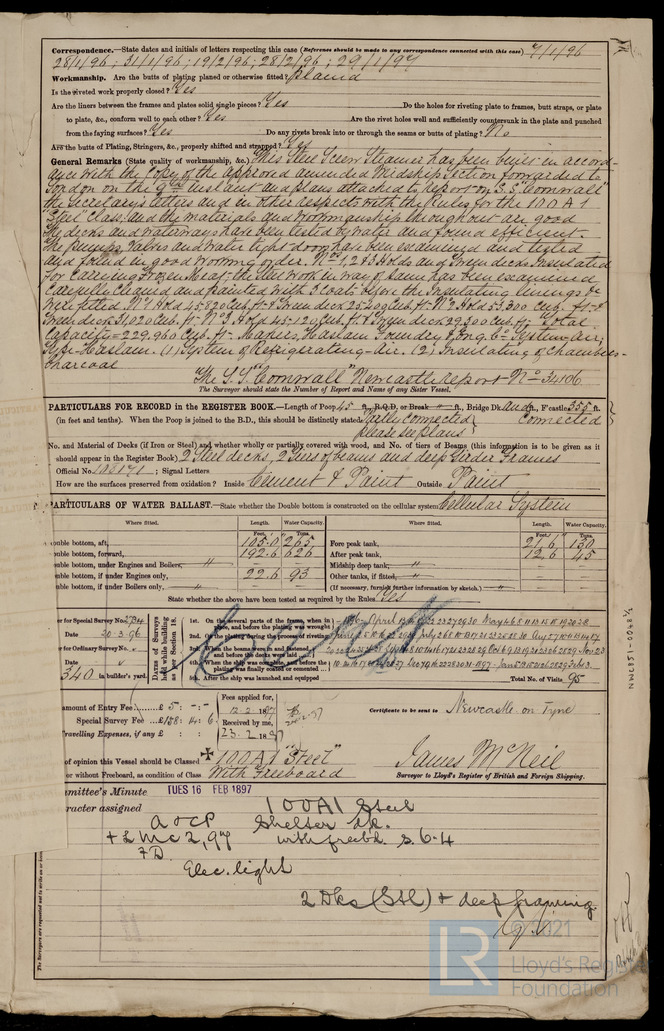 Correspondence.—State dates and initials of letters respecting this case (Reference should be made to any correspondence connected with this case) 7/1/96
28/1/96; 31/1/96; 19/2/96; 28/2/96; 29/1/97
Workmanship. Are the butts of plating planed or otherwise fitted? planed
Is the riveted work properly closed? Yes
Are the liners between the frames and plates solid single pieces? Yes Do the holes for riveting plate to frames, butt straps, or plate
to plate, &c., conform well to each other? Yes Are the rivet holes well and sufficiently countersunk in the plate and punched
from the faying surfaces? Yes Do any rivets break into or through the seams or butts of plating? No
Are the butts of Plating, Stringers, &c., properly shifted and strapped? Yes
General Remarks (State quality of workmanship, &c.) This Steel Screw Steamer has been built in accord-
ance with the copy of the approved amended Midship Section forwarded to
London on the instant and plans attached to report on S.S. "Cornwall"
the Secretary's letters and in other respects with the Rules for the 100A1
"Steel" Class, and the materials and workmanship throughout are good
The decks and waterways have been tested by water and found efficient.
The pumps, valves and water tight doors have been examined and tested
and found in good working order. Nos 1, 2 & 3 Holds and Tween decks Insulated
for carrying frozen meat, the steel work in way of same has been examined
carefully cleaned and painted with 3 coats before the Insulating linings &c
were fitted. No 1 Hold 45,820 Cub. ft. & Tween deck 25,200 Cub. ft. No 2 Hold 53,300 Cub. ft. &
Tween deck 31,020 Cub. ft. No 3 Hold 45,120 Cub. ft. & Tween deck 29,500 Cub. ft. Total
Capacity = 229,960 Cub. ft. Makers, Haslam Foundry & Eng. Co. System Air,
Type Haslam. (1) System of Refrigerating - air. (2) Insulating of chambers
charcoal
The S.S. "Cornwall" Newcastle report No 34106
The Surveyor should state the Number of Report and Name of any Sister Vessel.
PARTICULARS FOR RECORD in the REGISTER BOOK.—Length of Poop 45 ft., R.Q.D. or Break — ft., Bridge Dk. and ft., F'castle 355 ft.
(in feet and tenths). When the Poop is joined to the B.D., this should be distinctly stated. Partly Connected connected
please see plans
No. and Material of Decks (if Iron or Steel) and whether wholly or partially covered with wood, and No. of tiers of Beams (this information is to be given as it
should appear in the Register Book) 2 Steel decks, 2 Tiers of beams and deep Girder Frames
Official No. ; Signal Letters
How are the surfaces preserved from oxidation? Inside Cement & Paint Outside Paint
PARTICULARS OF WATER BALLAST.—State whether the Double bottom is constructed on the cellular system Cellular System
Where fitted. Length. Water Capacity. Where fitted. Length. Water Capacity.
Feet. Tons. Feet. Tons.
ouble bottom, aft, 105.0 265 Fore peak tank, 21.6 130
ouble bottom, forward, 192.6 626 After peak tank, 12.6 45
ouble bottom, under Engines and Boilers, " — — Midship deep tank, " — —
ouble bottom, if under Engines only, 22.6 93 Other tanks, if fitted, " — —
ouble bottom, if under Boilers only, " — — (If necessary, furnish further information by sketch.) "
State whether the above have been tested as required by the Rules Yes
er for Special Survey No. 2784
Date 20.3.96
er for Ordinary Survey No.
Date
340 in builder's yard.
Dates of Surveys held while building as per Section 18.
1st. On the several parts of the frame, when in place, and before the plating was wrought
2nd. On the plating during the process of riveting
3rd. When the beams were in and fastened, and before the decks were laid
4th. When the ship was complete, and before the plating was finally coated or cemented
5th. After the ship was launched and equipped
Total No. of Visits 95
amount of Entry Fee £ 5 : — : —
Special Survey Fee £ 158 : 4 : 6
Travelling Expenses, if any £ : :
Fees applied for, 12.2.1897
Received by me, 23.2.1897
Certificate to be sent to Newcastle on Tyne
of opinion this Vessel should be Classed 100A1 "Steel"
or without Freeboard, as condition of Class With Freeboard
James McNeil
Surveyor to Lloyd's Register of British and Foreign Shipping.
mmittee's Minute TUES 16 FEB 1897
racter assigned 100A1 Steel
A & CP Shelter dk.
+ L M C 2,97 with freebd. 5.6-4
Elec. light
2 Dks (Stl) & deep framing.
©2021
LR
Lloyd's Register
Foundation